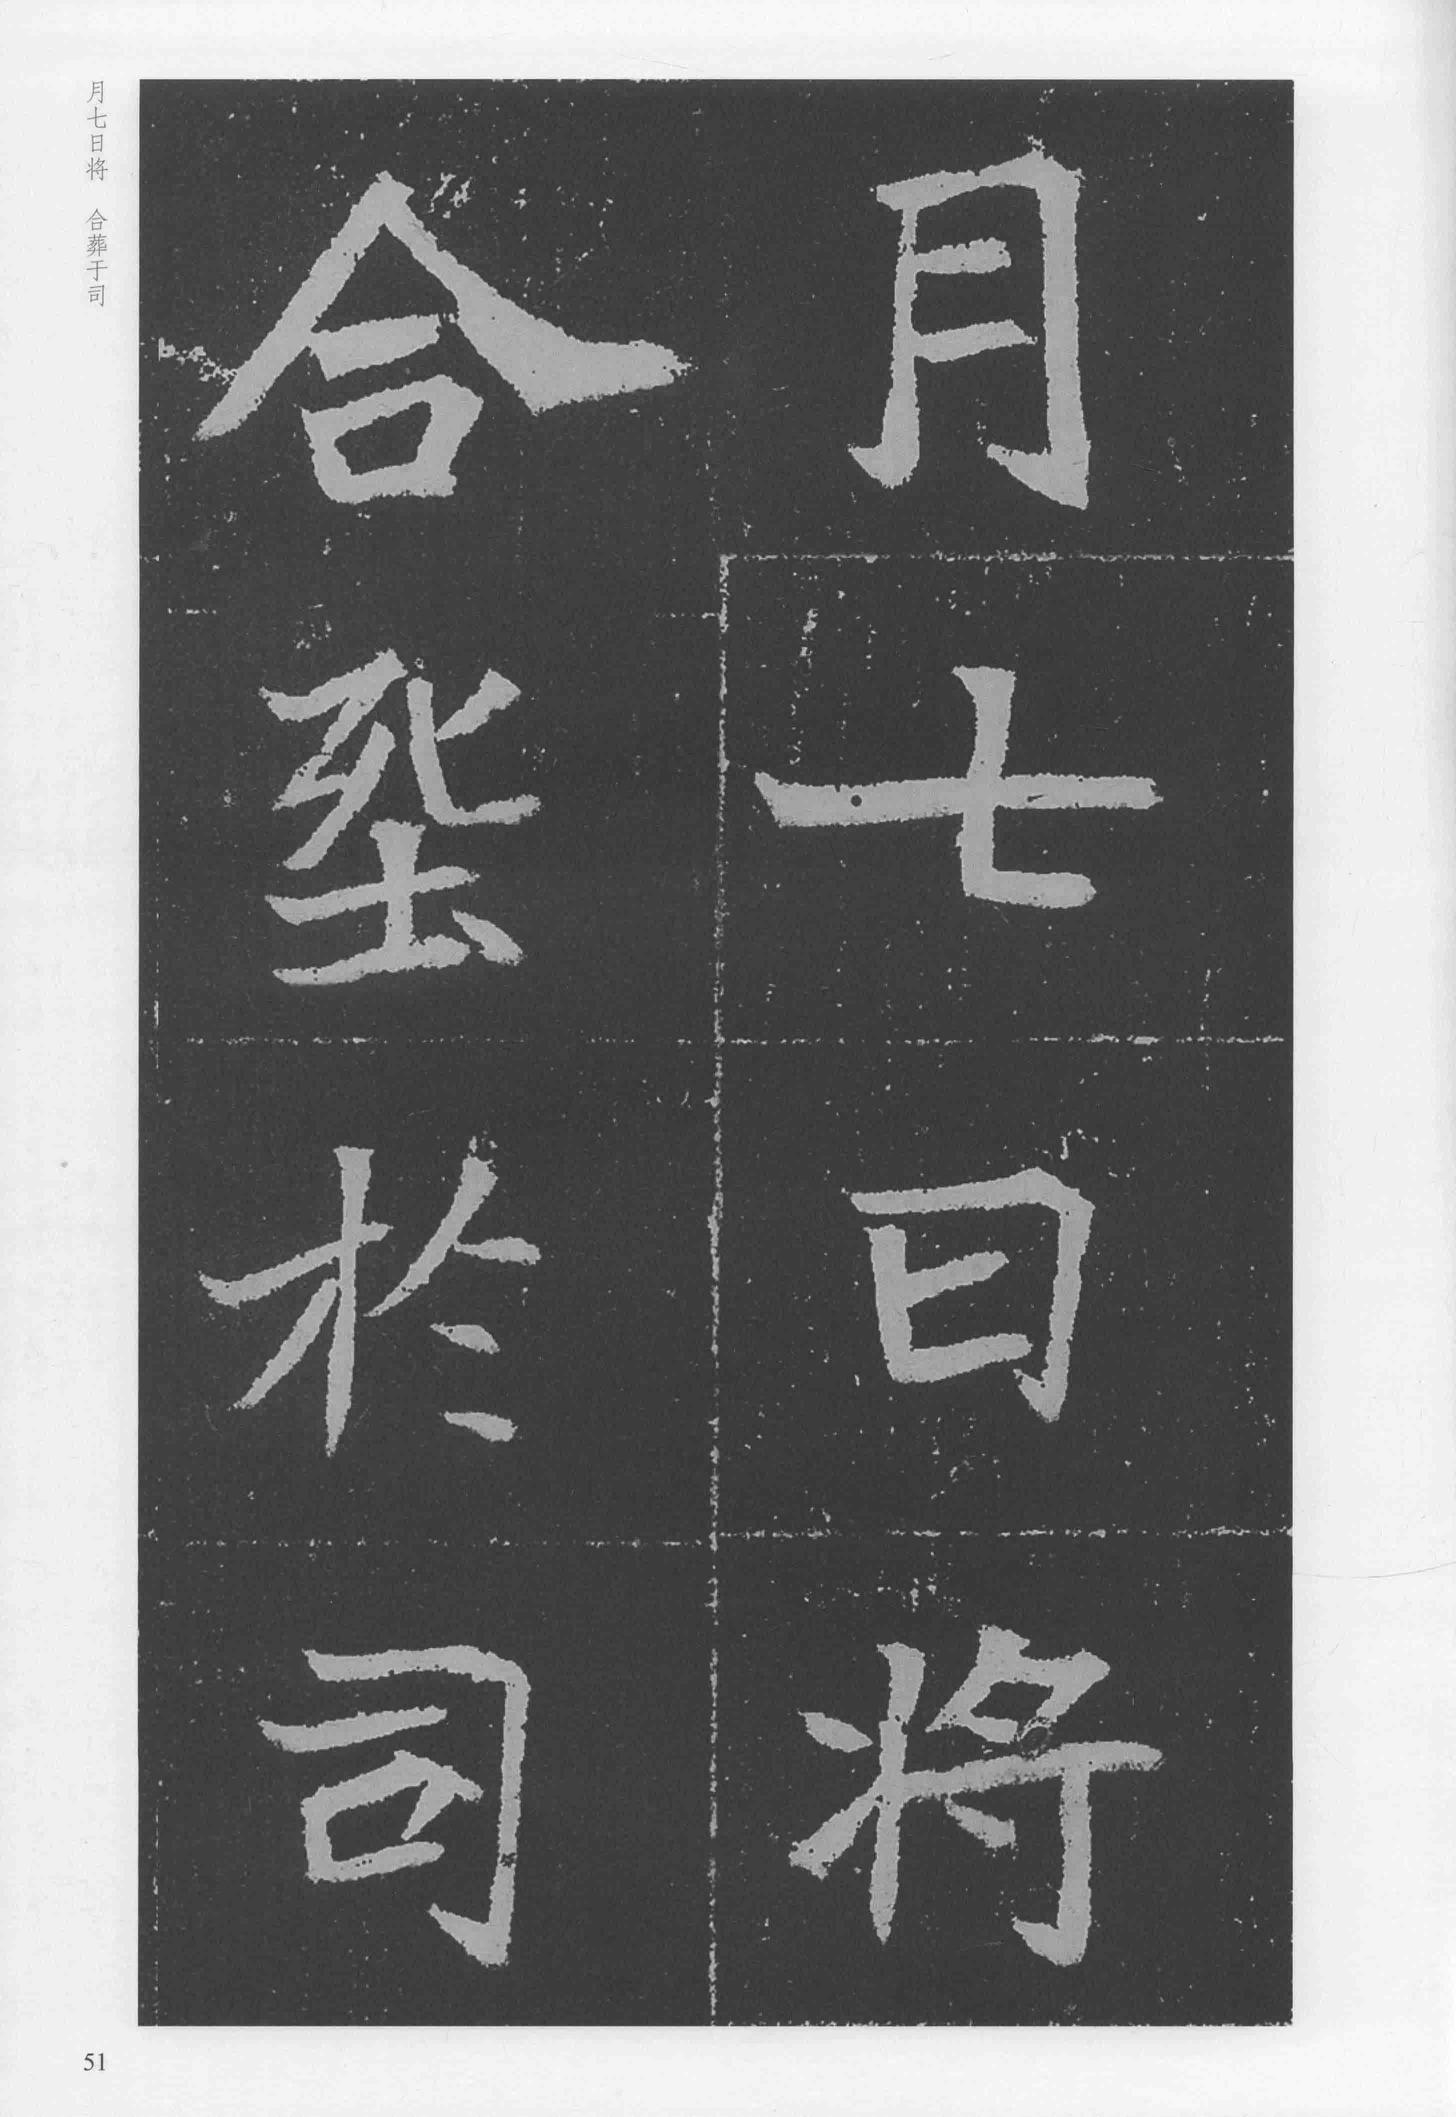 月七日将
合塟於司
月七日将 合葬于司
51